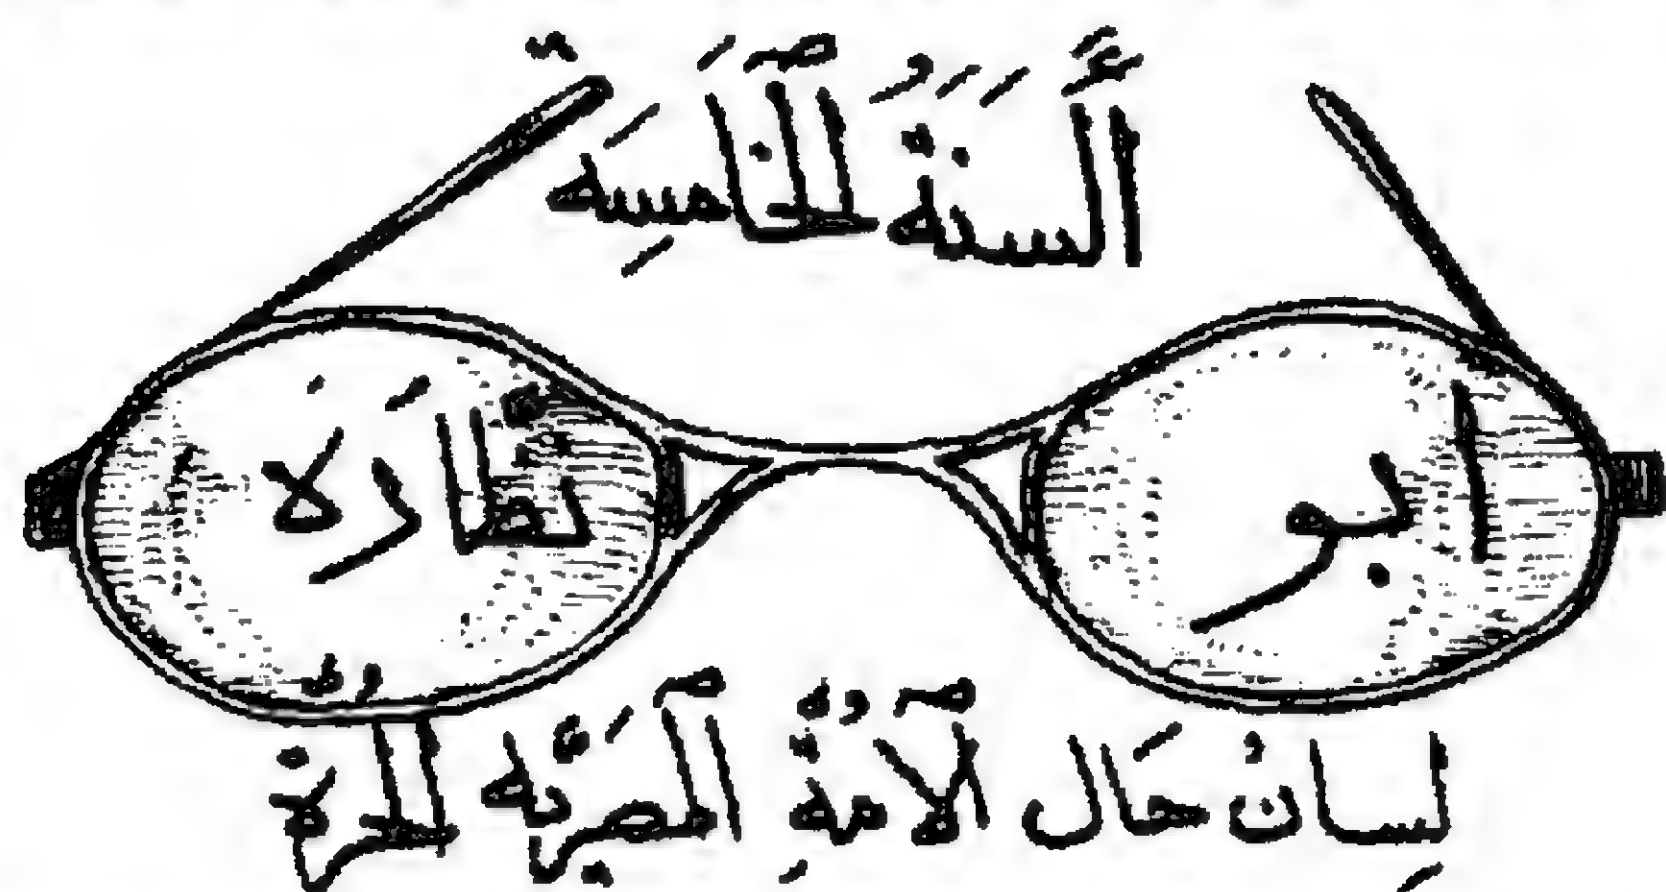 أَلسَنَةُ ٱلْخَامِسَه
ابو نظّارَه
لِسانُ حَال ٱلامَّةِ ٱلمَصريّه ٱلحُرّة